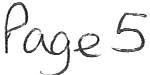 Page 5